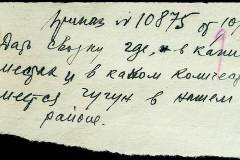 Приказ № 10875 от 10/
Дать сводку где, в каки
местах и в каком количес
имеется чугун в нашем
районе.